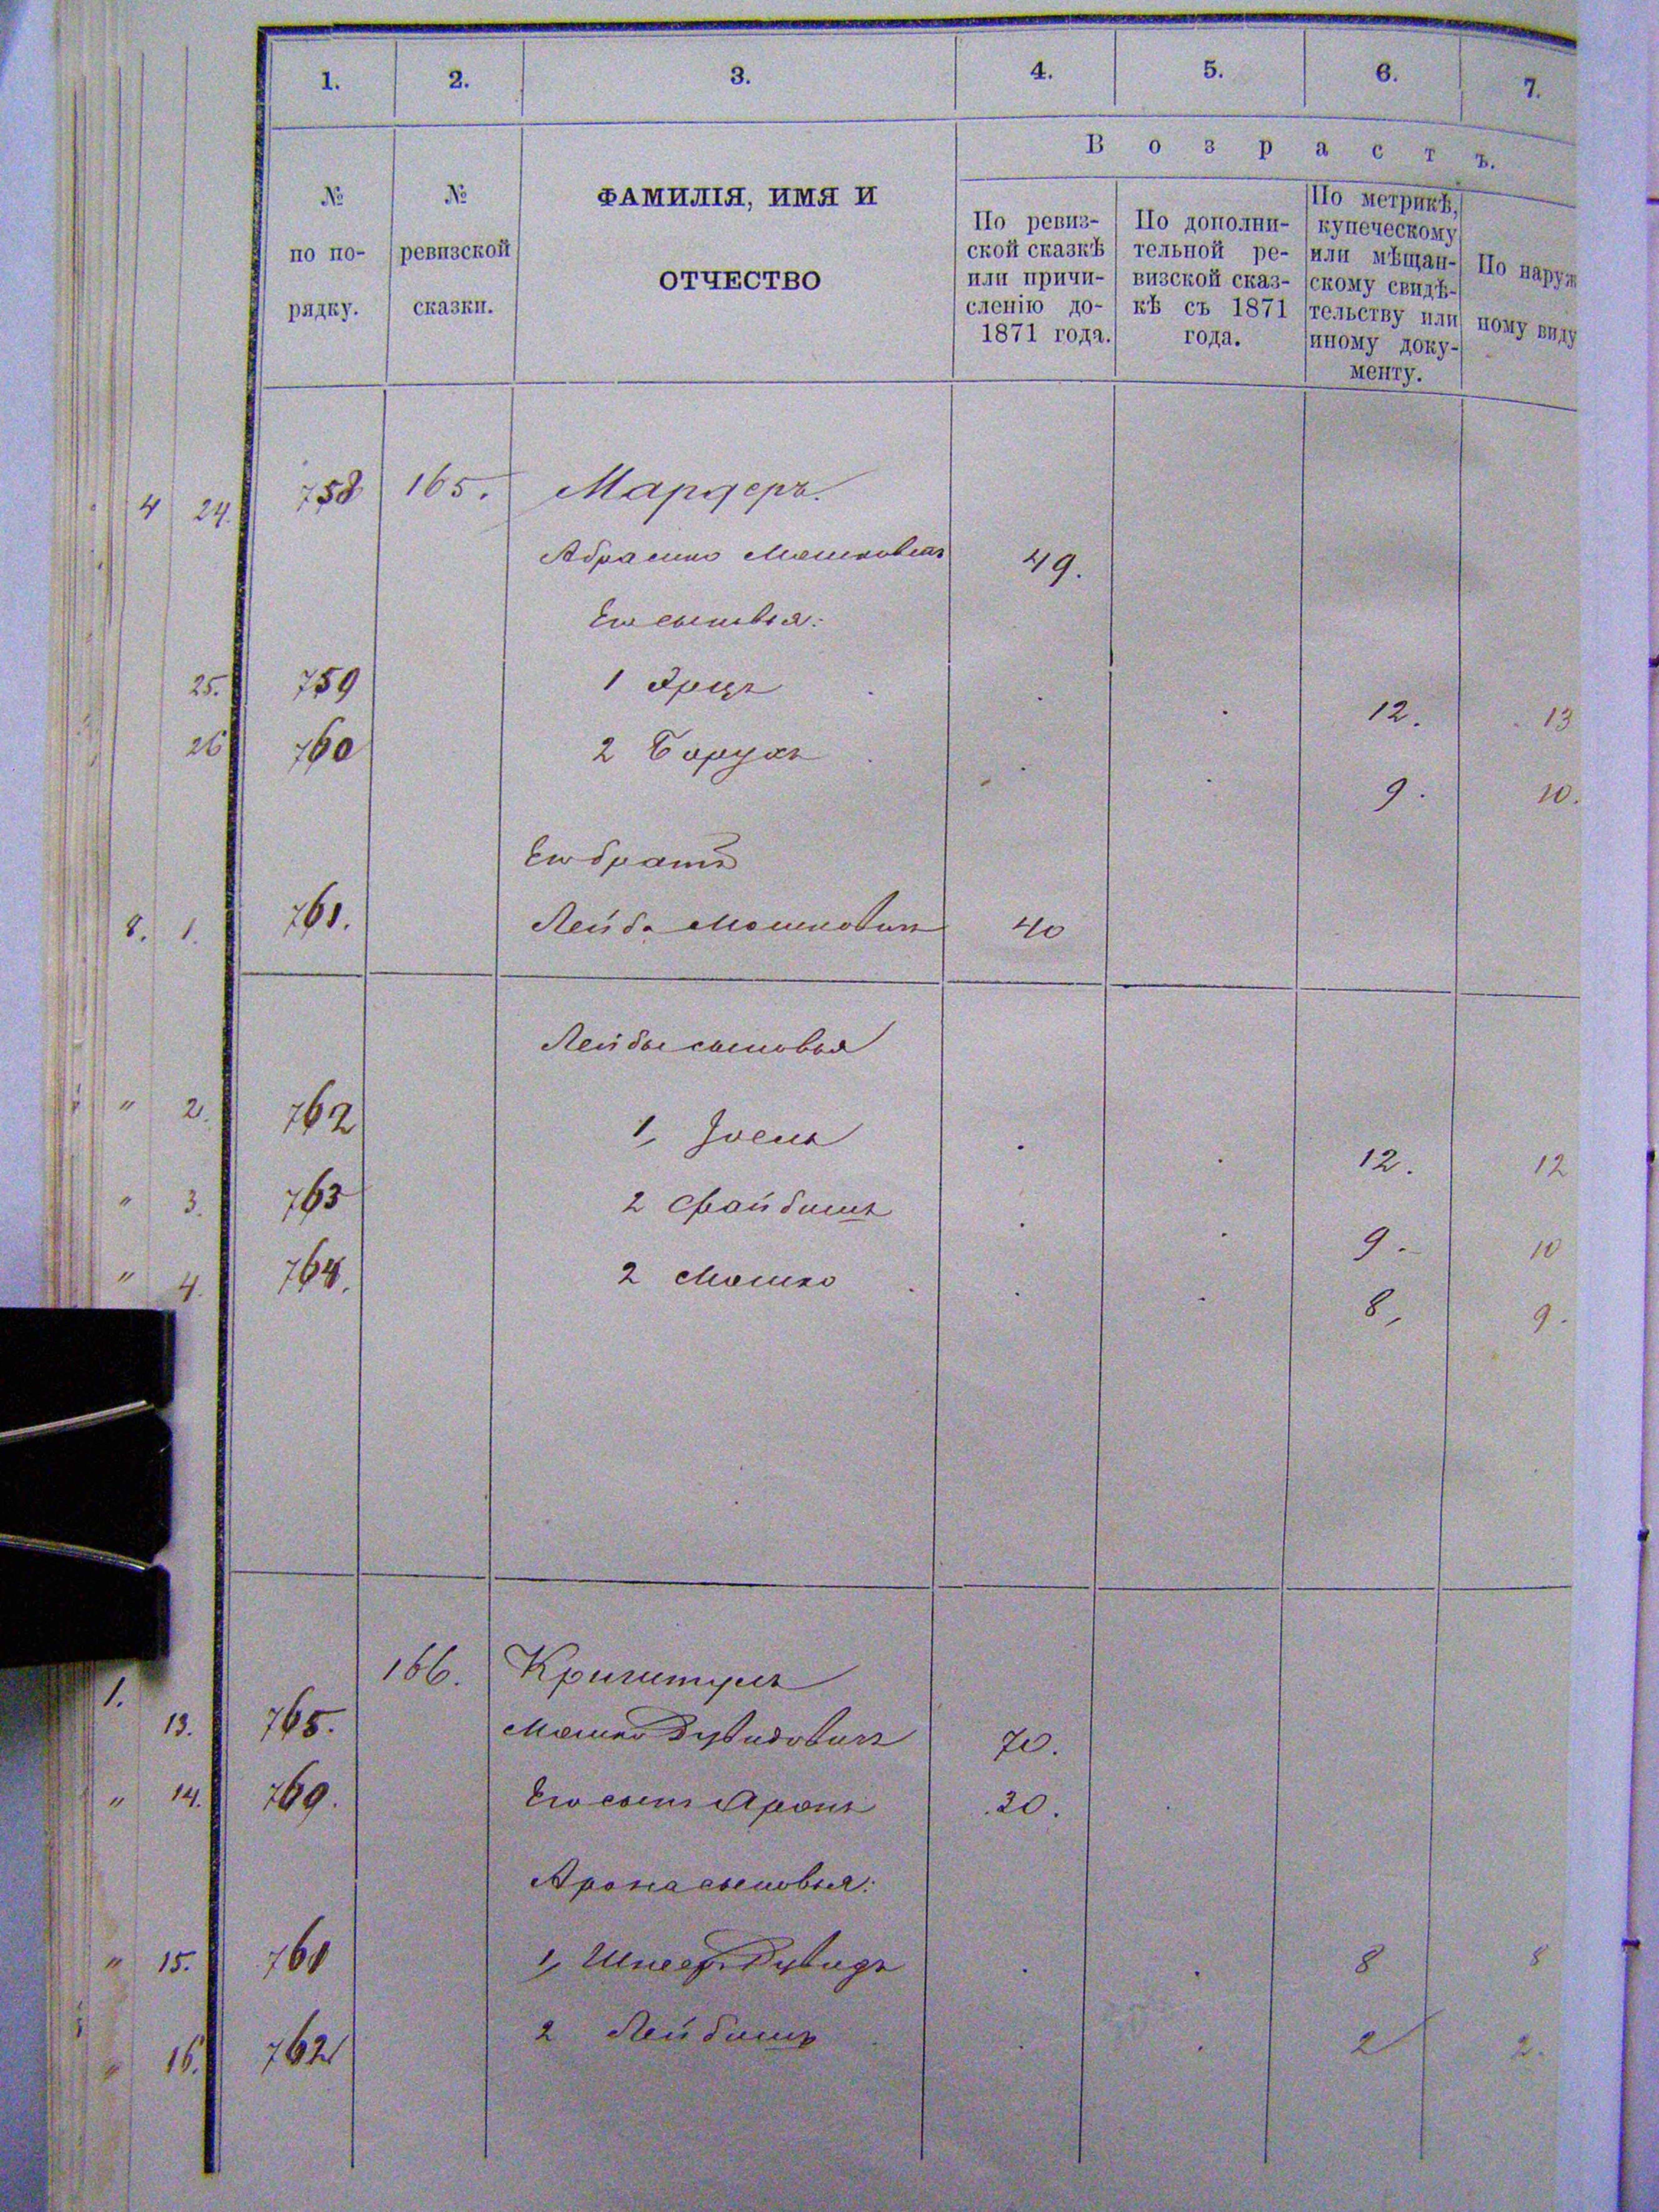 1. 2. 3. 4. 5. 6. 7.
Возрастъ.
№ по по-
рядку.
№
ревизской
сказки.
ФАМИЛІЯ, ИМЯ И
ОТЧЕСТВО
По ревиз-
ской сказкѣ
или причи-
сленію до-
1871 года.
По дополни-
тельной ре-
визской сказ-
кѣ съ 1871
года.
По метрикѣ,
купеческому
или мѣщан-
скому свидѣ-
тельству или
иному доку-
менту.
По наруж
ному виду
4 24. 758 165. Мардеръ.
Абрамко Мошковичъ 49.
Его сыновья:
25. 759 1 Эрцъ 12. 13
26 760 2 Борухъ 9. 10.
Его братъ
8. 1. 761. Лейба Мошковичъ 40
Лейбы сыновья
" 2. 762 1, Іоель 12. 12
" 3. 763 2 Файбишъ 9. 10
" 4. 764. 2 Мошко 8, 9.
166.
1. 13. 765. Мошко Дувидовичъ 70.
" 14. 769. Его сынъ Аронъ 30.
Арона сыновья:
" 15. 761 1, Шнеер Дувидъ 8 8
" 16. 762 2 Лейбишъ 2 2.